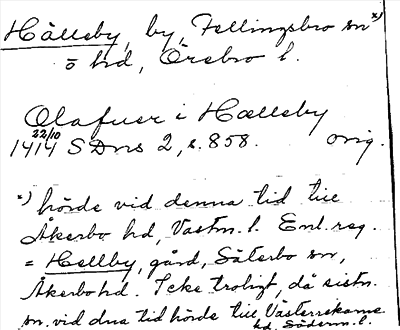 Hällsby, by, Fellingsbro sn *)
o hd, Örebro l.
Olafuer i Hællsby
22/10
1414 SDns 2, s. 858. orig.
*) hörde vid denna tid till
Åkerbo hd, Västm. l. Enl. reg.
= Hellby, gård, Säterbo sn,
Åkerbo hd. Icke troligt, då sistn.
sn. vid dna tid hörde till Västerrekarne
hd. Söderm. l.